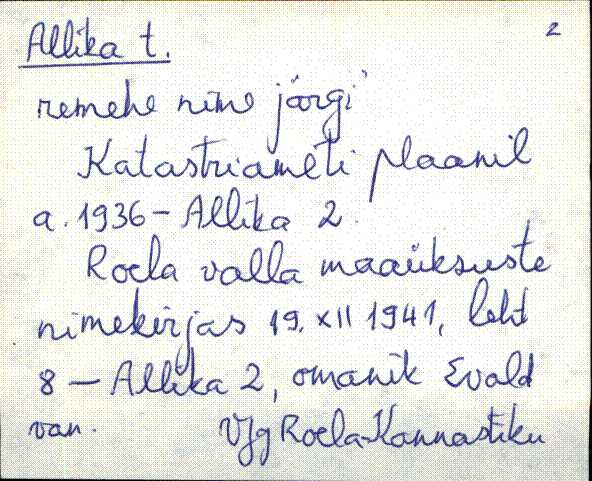 Allika t. 2
remehe nime järgi
Katastriameti plaanil
a. 1936 - Allika 2.
Roela valla maaüksuste
nimekirjas 19. XII 1941, leht
8 - Allika 2, omanik Evald
van. VJg Roela-Kannastiku